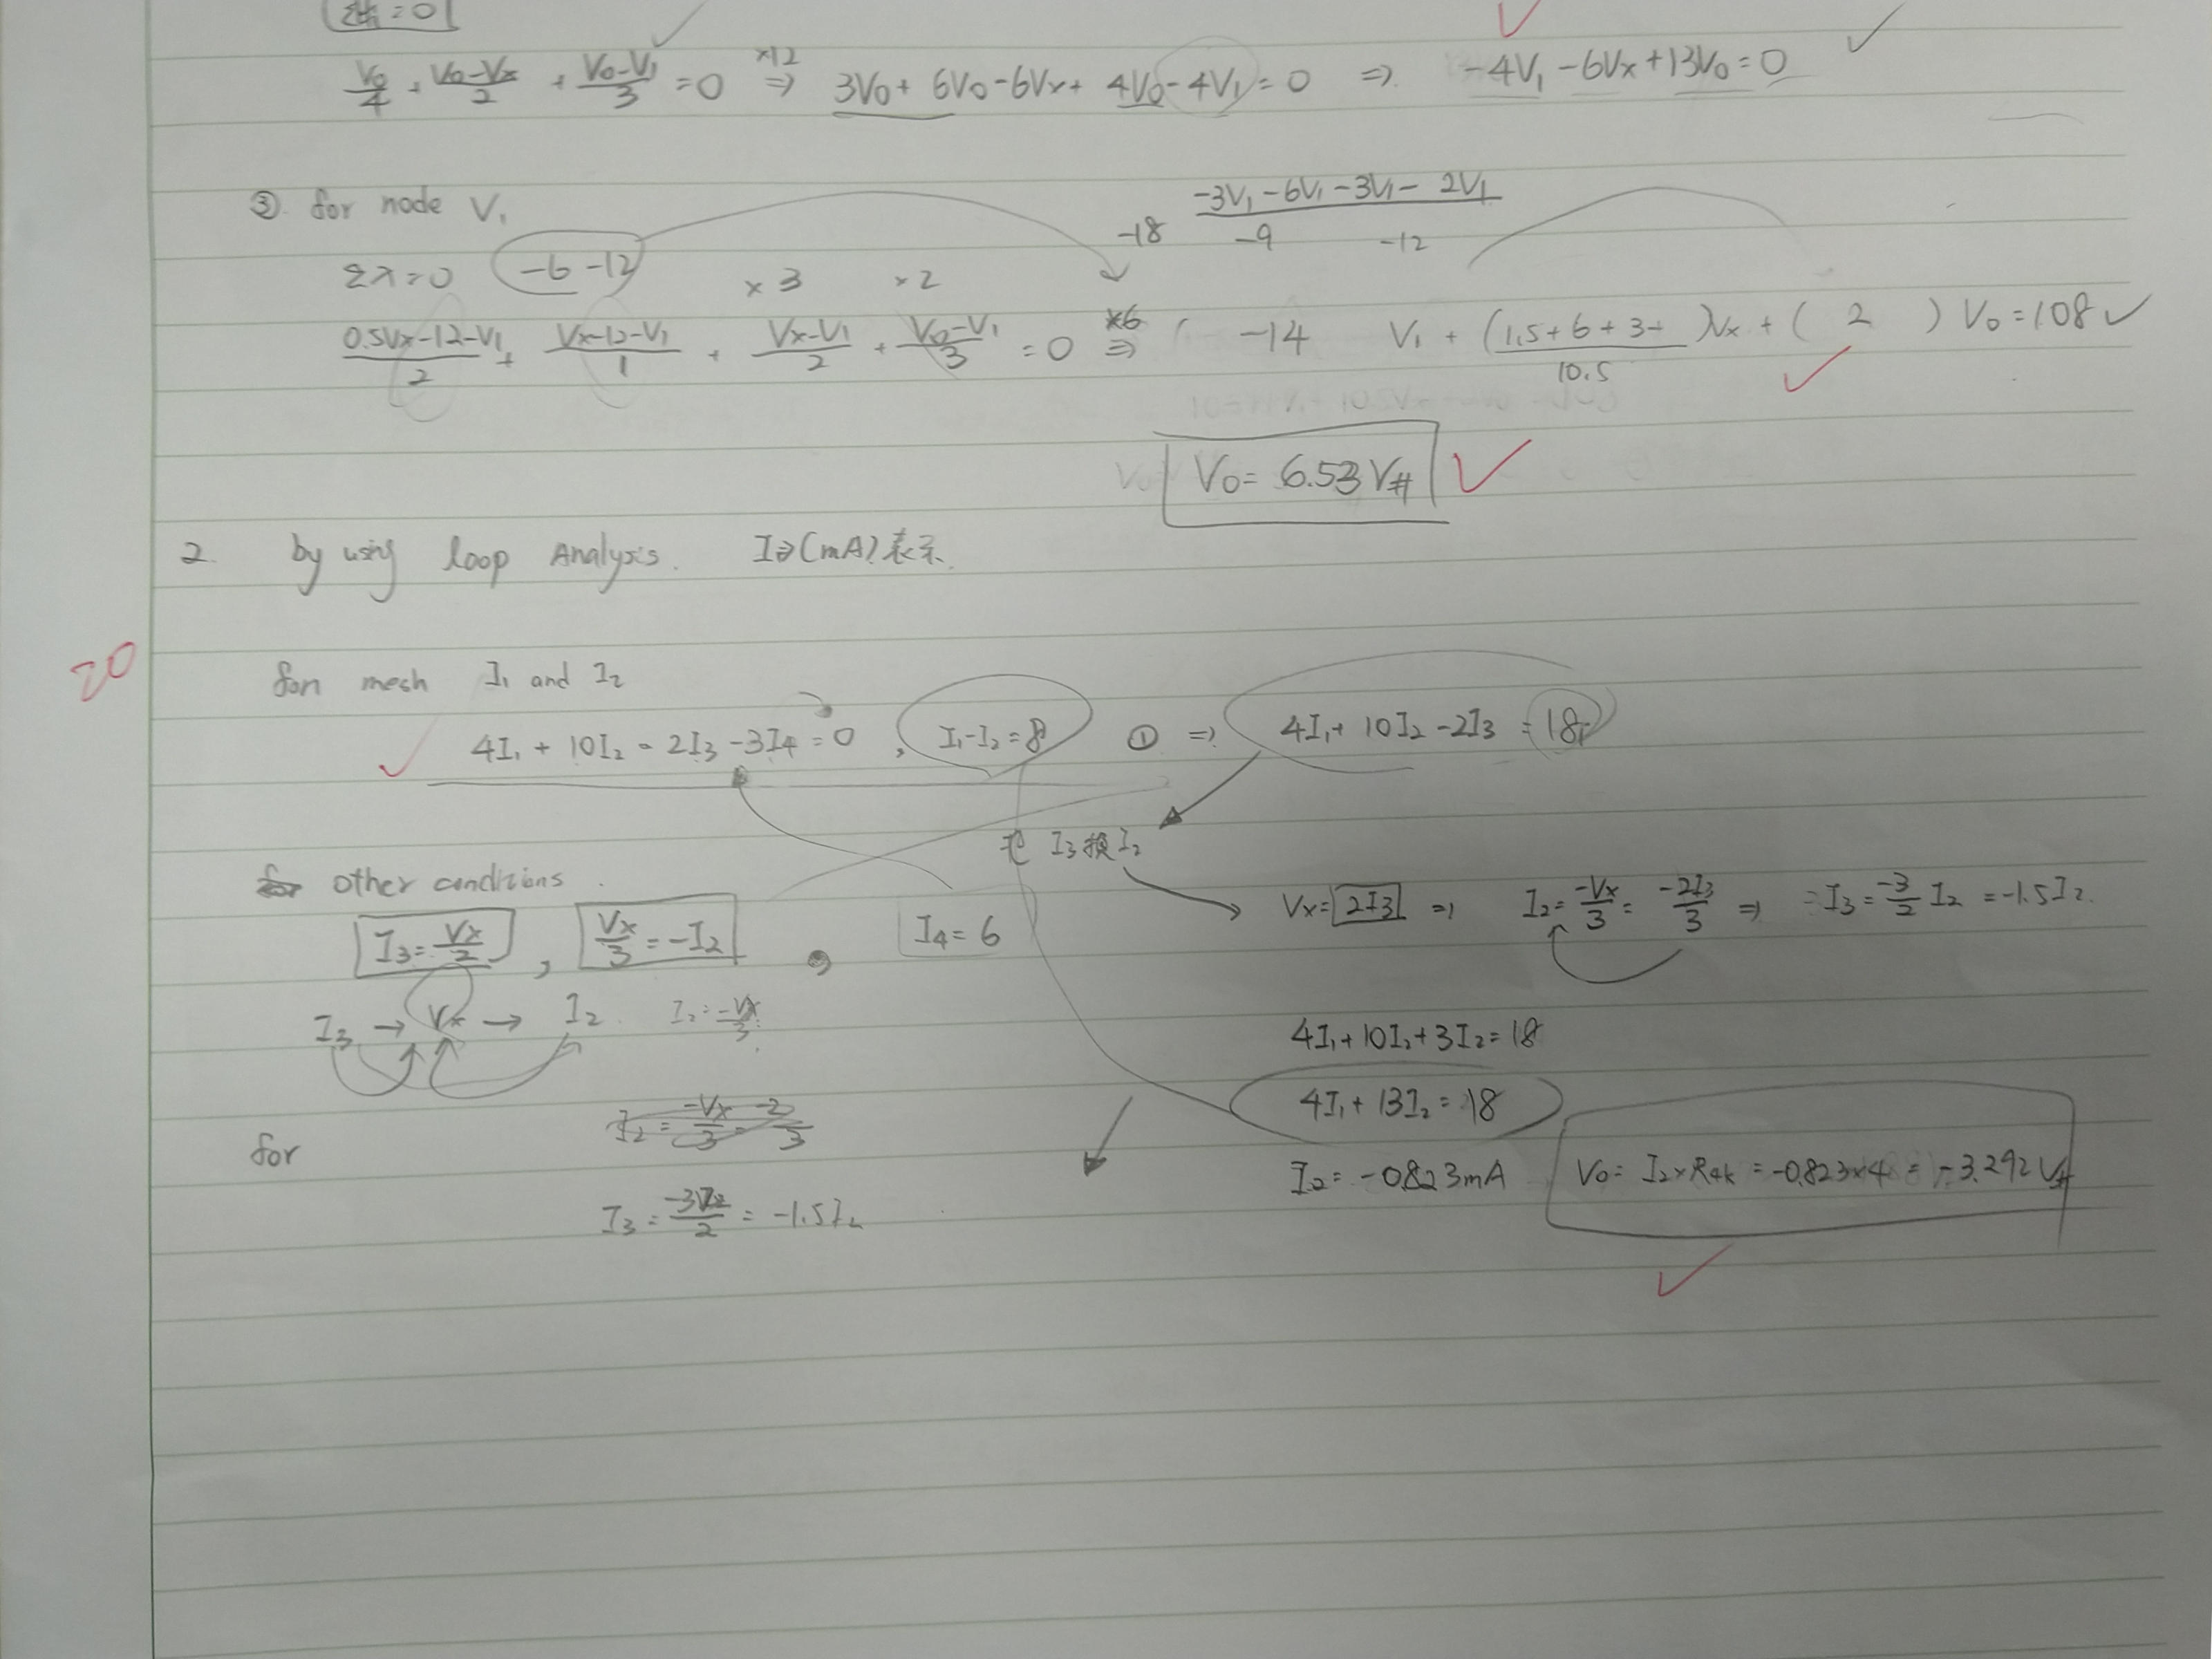 =0
V0/4 + V0-Vx/2 + V0-V1/3 = 0 ×12 ⇒ 3V0 + 6V0 - 6Vx + 4V0 - 4V1 = 0 ⇒ -4V1 - 6Vx + 13V0 = 0
③ for node V1
-3V1 - 6V1 - 3V1 - 2V1
-18 -9 -12
Σλ=0 -6 -12 ×3 ×2
0.5Vx-12-V1/2 + Vx-12-V1/1 + Vx-V1/2 + V0-V1/3 = 0 ×6 ⇒ -14 V1 + (1.5+6+3+ )Vx + ( 2 ) V0 = 108
10.5
V0 = 6.53 V#
2. by using loop Analysis. I (mA) 表示
20
for mesh I1 and I2
4I1 + 10I2 - 2I3 - 3I4 = 0 , I1-I2 = 8 ① ⇒ 4I1 + 10I2 - 2I3 = 18
把 I3 換 I2
other conditions.
I3 = Vx/2 , Vx/3 = -I2 , I4 = 6
Vx = 2I3 ⇒ I2 = -Vx/3 = -2I3/3 ⇒ I3 = -3/2 I2 = -1.5I2
I3 → Vx → I2 I2 = -Vx/3
4I1 + 10I2 + 3I2 = 18
I2 = -Vx/3 -2/3
4I1 + 13I2 = 18
for
I2 = -0.823mA V0 = I2×R4k = -0.823×4 = -3.292 V#
I3 = -3I2/2 = -1.5I2